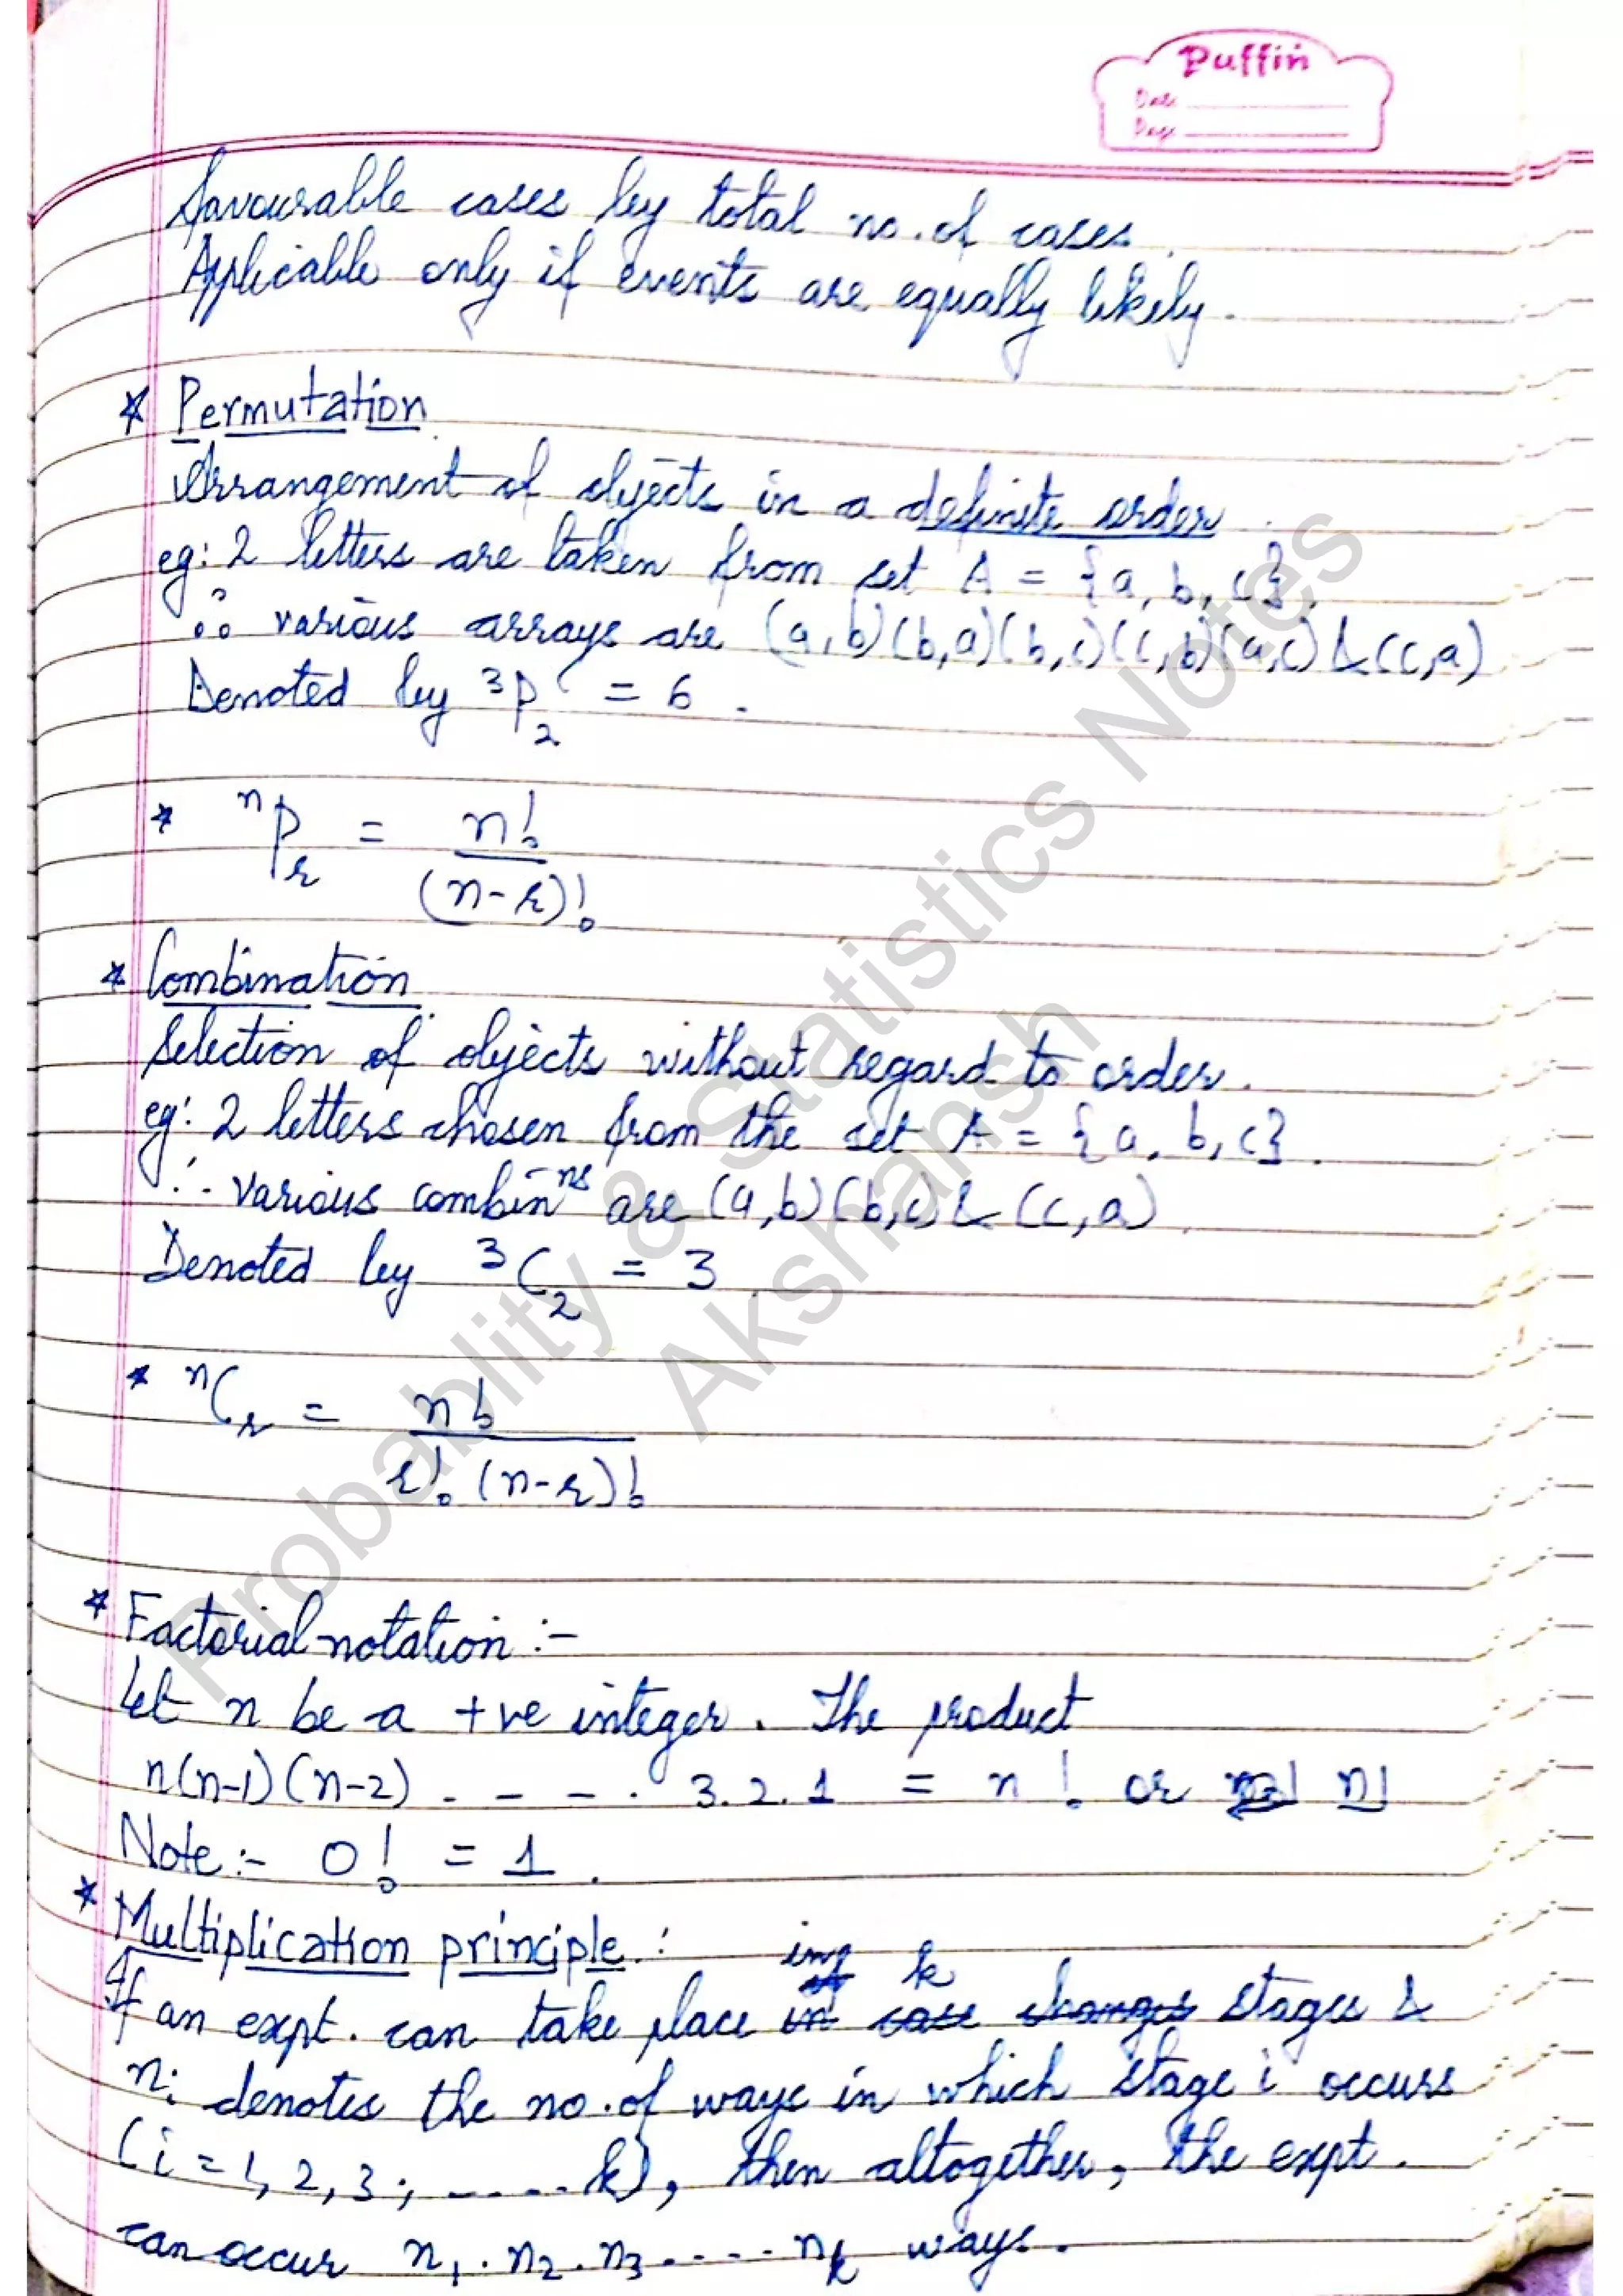 Puffin
Date
Page
favourable cases by total no. of cases.
Applicable only if events are equally likely.
* Permutation
Arrangement of objects in a definite order.
eg: 2 letters are taken from set A = {a, b, c}.
∴ various arrays are (a,b)(b,a)(b,c)(c,b)(a,c)&(c,a)
Denoted by ³P₂ = 6.
* ⁿPᵣ = n!
(n-r)!
* Combination
Selection of objects without regard to order.
eg: 2 letters chosen from the set A = {a, b, c}.
∴ various combinⁿˢ are (a,b)(b,c)&(c,a).
Denoted by ³C₂ = 3.
* ⁿCᵣ = n!
r! (n-r)!
* Factorial notation :-
Let n be a +ve integer. The product
n(n-1)(n-2) - - - . 3.2.1 = n! or n|
Note:- 0! = 1.
* Multiplication principle :
If an expt. can take place in k stages &
nᵢ denotes the no. of ways in which stage i occurs
(i = 1, 2, 3, ..... k), then altogether, the expt.
can occur n₁.n₂.n₃..... nₖ ways.
Probablity & Statistics Notes
Akshansh